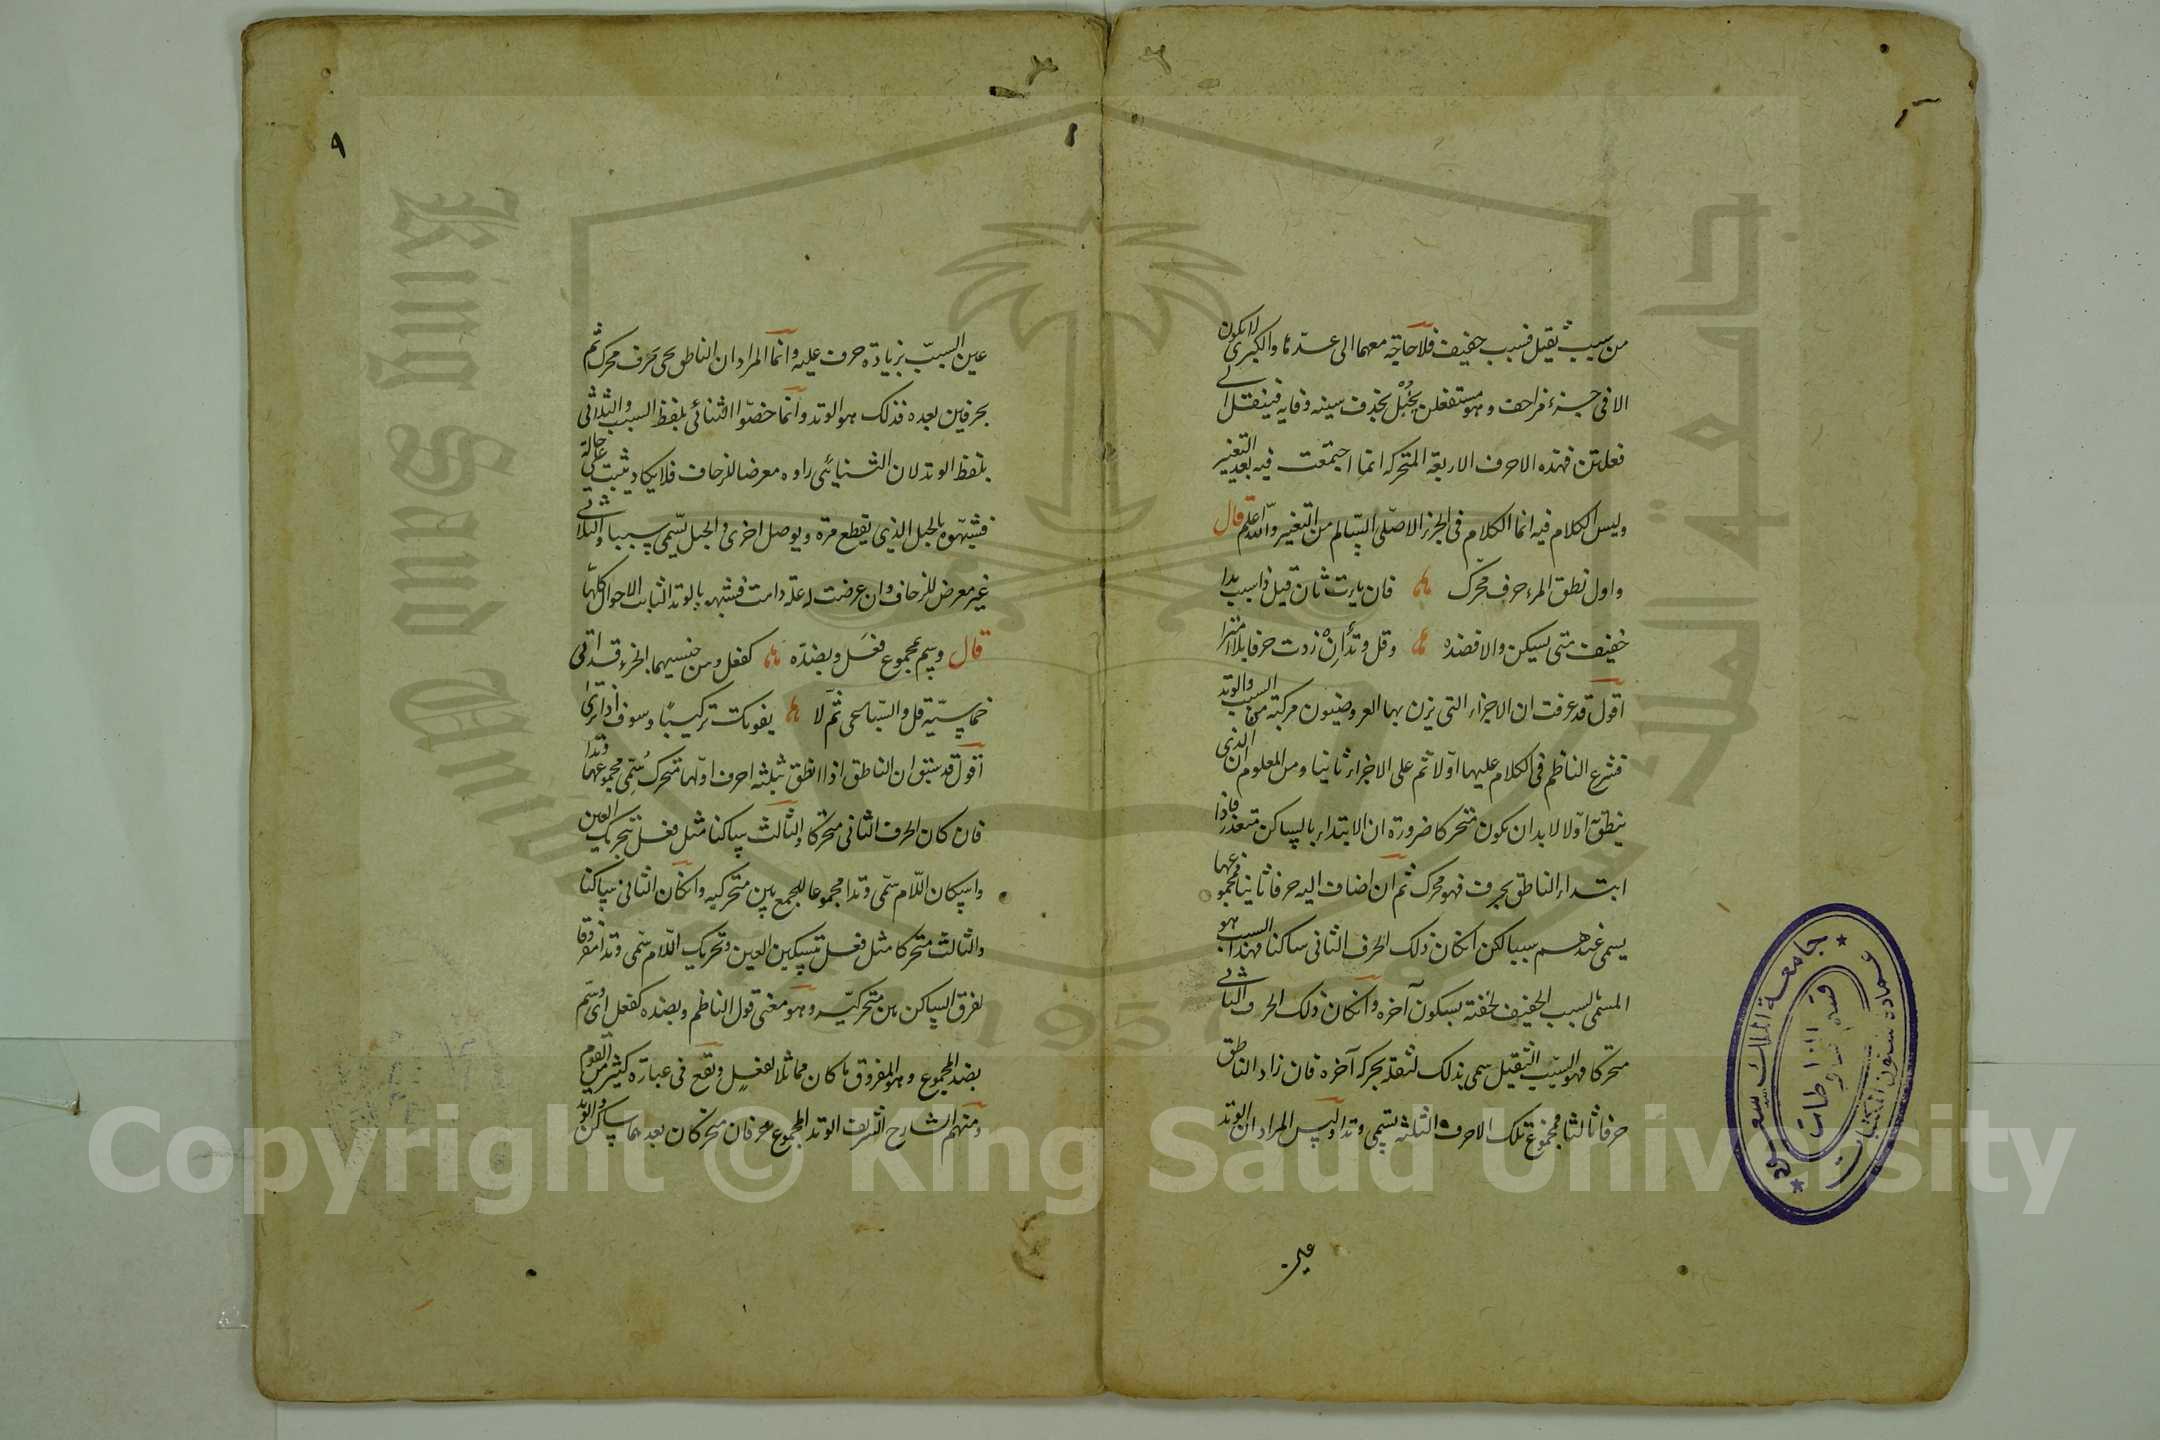 من سبب ثقيل فسبب خفيف فلا حاجة معهما الى عدّها والكبرى لا يكون
الا في جزء مزاحف وهو مستفعلن بخبل بحذف سينه وفايه فينقل الى
فعلتن فهذه الاحرف الاربعة المتحركة انما اجتمعت فيه بعد التغيير
وليس الكلام فيه انما الكلام في الجزء الاصلي السالم من التغير والله اعلم قال
واول نطق المرء حرف محرك فان يات ثان قيل ذا سبب بدا
خفيف متى يسكن والا فضده وقل وتد ان زدت حرفا بلا امترا
اقول قد عرفت ان الاجزاء التي يزن بها العروضيون مركبة من السبب والوتد
فشرع الناظم في الكلام عليهما اولا ثم على الاجزاء ثانيا ومن المعلوم ان الذي
ينطق اولا لا بد ان يكون متحركا ضرورة ان الابتداء بالساكن متعذر فاذا
ابتداء الناطق بحرف فهو محرك ثم ان اضاف اليه حرفا ثانيا فمجموعهما
يسمى عندهم سببا لكن ان كان ذلك الحرف الثاني ساكنا فهذا السبب هو
المسمى بالسبب الخفيف لخفته بسكون آخره وان كان ذلك الحرف الثاني
متحركا فهو السبب الثقيل سمي بذلك لثقله بحركة آخره فان زاد الناطق
حرفا ثالثا فمجموع تلك الاحرف الثلثة يسمى وتدا وليس المراد ان الوتد
عين
٩
عين السبب بزيادة حرف عليه وانما المراد ان الناطق يحى بحرف محرك ثم
بحرفين بعده فذلك هو الوتد وانما خصوا الثنائي بلفظ السبب والثلاثي
بلفظ الوتد لان الثنيائي راوه معرضا للزحاف فلا يكاد يثبت على حالة
فشبهوه بالحبل الذي يقطع مرة ويوصل اخرى والحبل يسمى سببا والثلاثي
غير معرض للزحاف وان عرضت له علة دامت فشبه بالوتد الثابت الاحوال كلها
قال وسم بمجموع فعل وبضده كفعل ومن جنسيهما الجزء قد اتى
خماسية قل والسباعي ثم لا يفوتك تركيبا وسوف اذا ترى
اقول قد سبق ان الناطق اذا انطق بثلثة احرف اولها متحرك سمي مجموعهما وتدا
فان كان الحرف الثاني متحركا والثالث ساكنا مثل فعل بتحريك العين
واسكان اللام سمى وتدا مجموعا للجمع بين متحركيه وان كان الثاني ساكنا
والثالث متحركا مثل فعل بتسكين العين وتحريك اللام سمى وتدا مفروقا
لفرق الساكن بين متحركيه وهو معنى قول الناظم وبضده كفعل اي وسم
بضد المجموع وهو المفروق ما كان مماثلا لفعل وتقع في عبارة كثير من القوم
ومنهم الشارح الشريف الوتد المجموع حرفان متحركان بعدهما ساكن والوتد
جامعة الملك سعود
عمادة شئون المكتبات
King Saud University
1957
Copyright © King Saud University